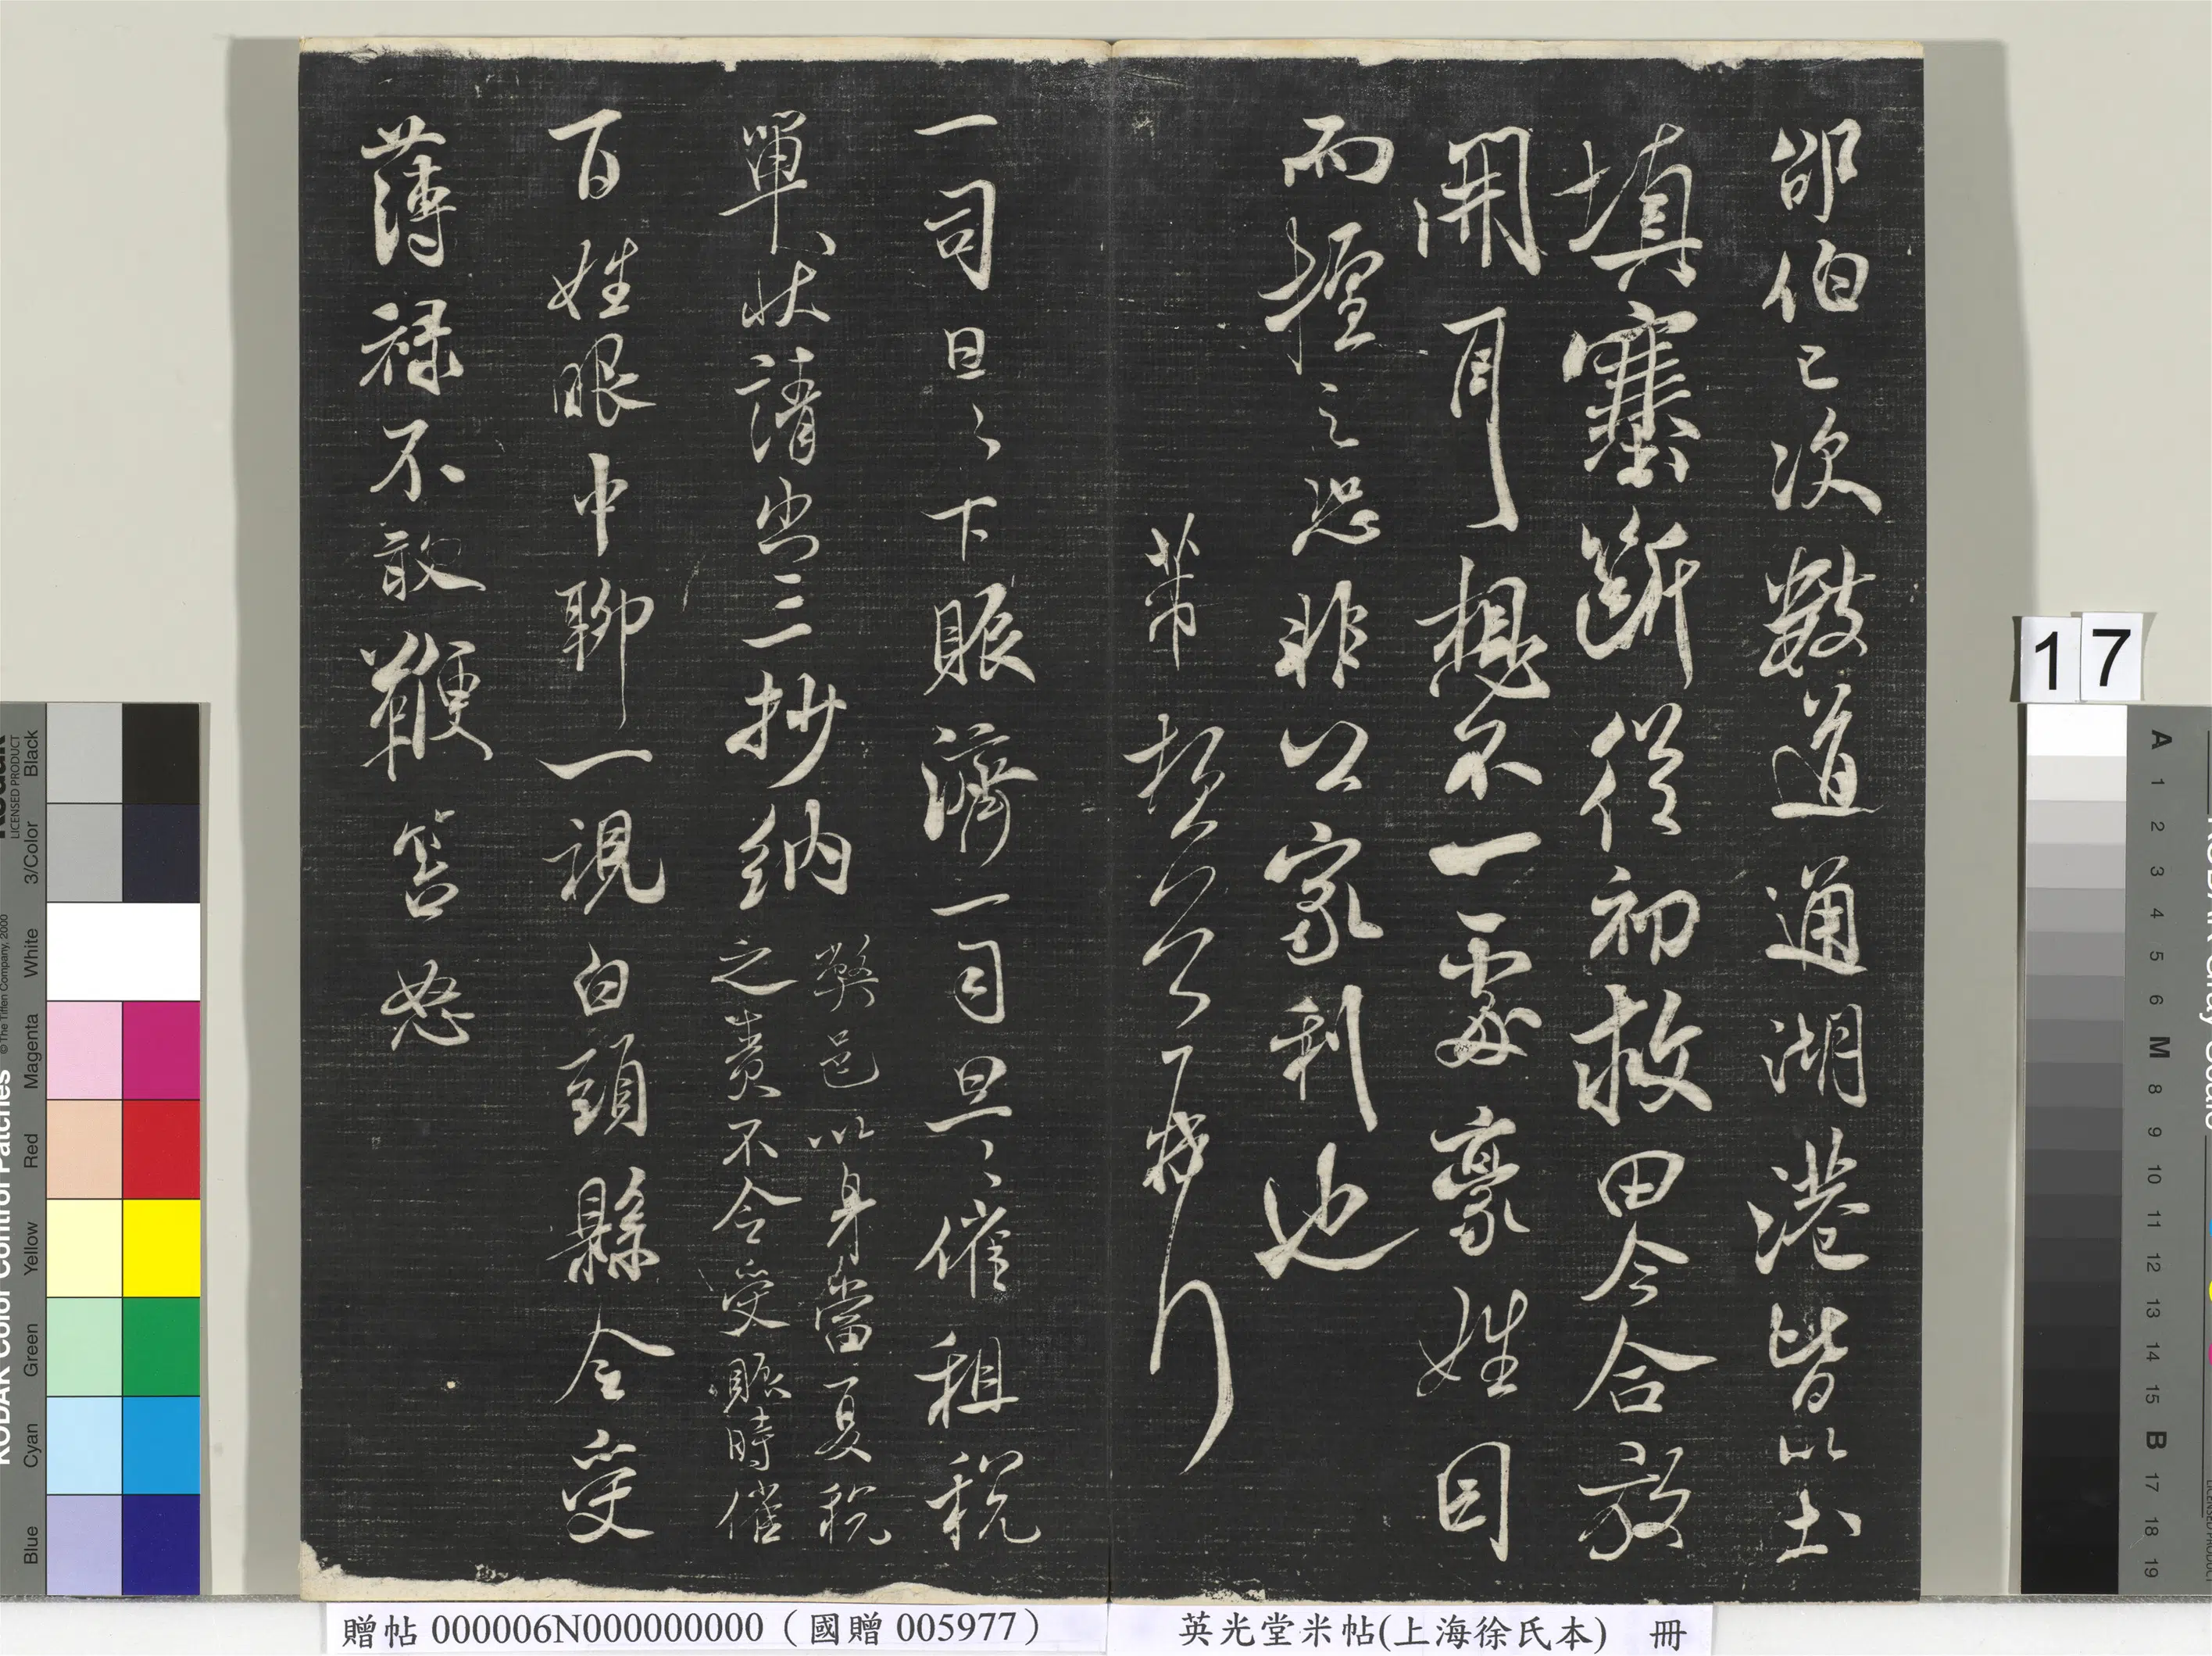 邵伯已次數道通湖港皆以土
填塞斷從初救田今合放
開育想不一處豪姓因
而堙之恐非公家利也
芾頓首
一司旦〻下賑濟一司旦〻催租稅
單狀請出三抄納
弊邑以身當夏稅
之責不令受賑時催
百姓眼中聊一視白頭縣令受
薄祿不敢鞭笞怒
17
贈帖 000006N000000000（國贈 005977）
英光堂米帖(上海徐氏本) 冊
KODAK Color Control Patches
LICENSED PRODUCT
© The Tiffen Company, 2000
Black
3/Color
White
Magenta
Red
Yellow
Green
Cyan
Blue
A 1 2 3 4 5 6 M 8 9 10 11 12 13 14 15 B 17 18 19